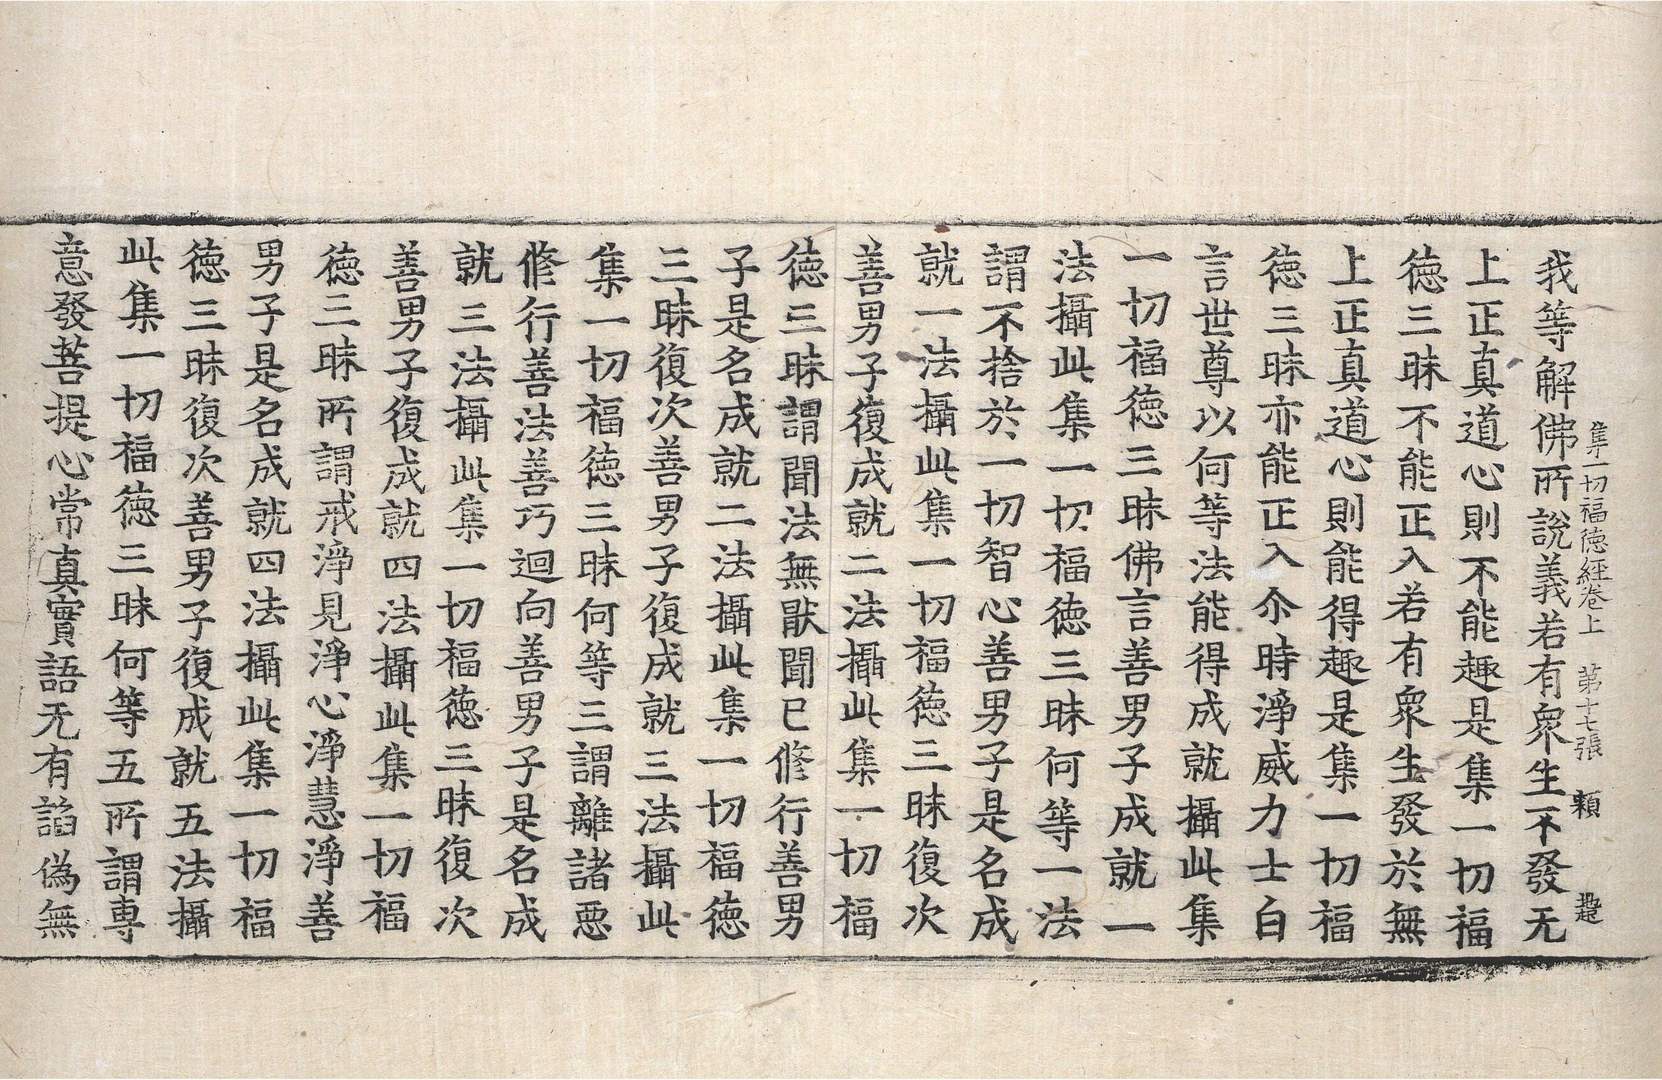 集一切福德經卷上　第十七張　頼
我等解佛所說義若有衆生不發无
上正真道心則不能趣是集一切福
德三昧不能正入若有衆生發於無
上正真道心則能得趣是集一切福
德三昧亦能正入尒時淨威力士白
言世尊以何等法能得成就攝此集
一切福德三昧佛言善男子成就一
法攝此集一切福德三昧何等一法
謂不捨於一切智心善男子是名成
就一法攝此集一切福德三昧復次
善男子復成就二法攝此集一切福
德三昧謂聞法無猒聞已修行善男
子是名成就二法攝此集一切福德
三昧復次善男子復成就三法攝此
集一切福德三昧何等三謂離諸惡
修行善法善巧迴向善男子是名成
就三法攝此集一切福德三昧復次
善男子復成就四法攝此集一切福
德三昧所謂戒淨見淨心淨慧淨善
男子是名成就四法攝此集一切福
德三昧復次善男子復成就五法攝
此集一切福德三昧何等五所謂専
意發菩提心常真實語无有諂偽無